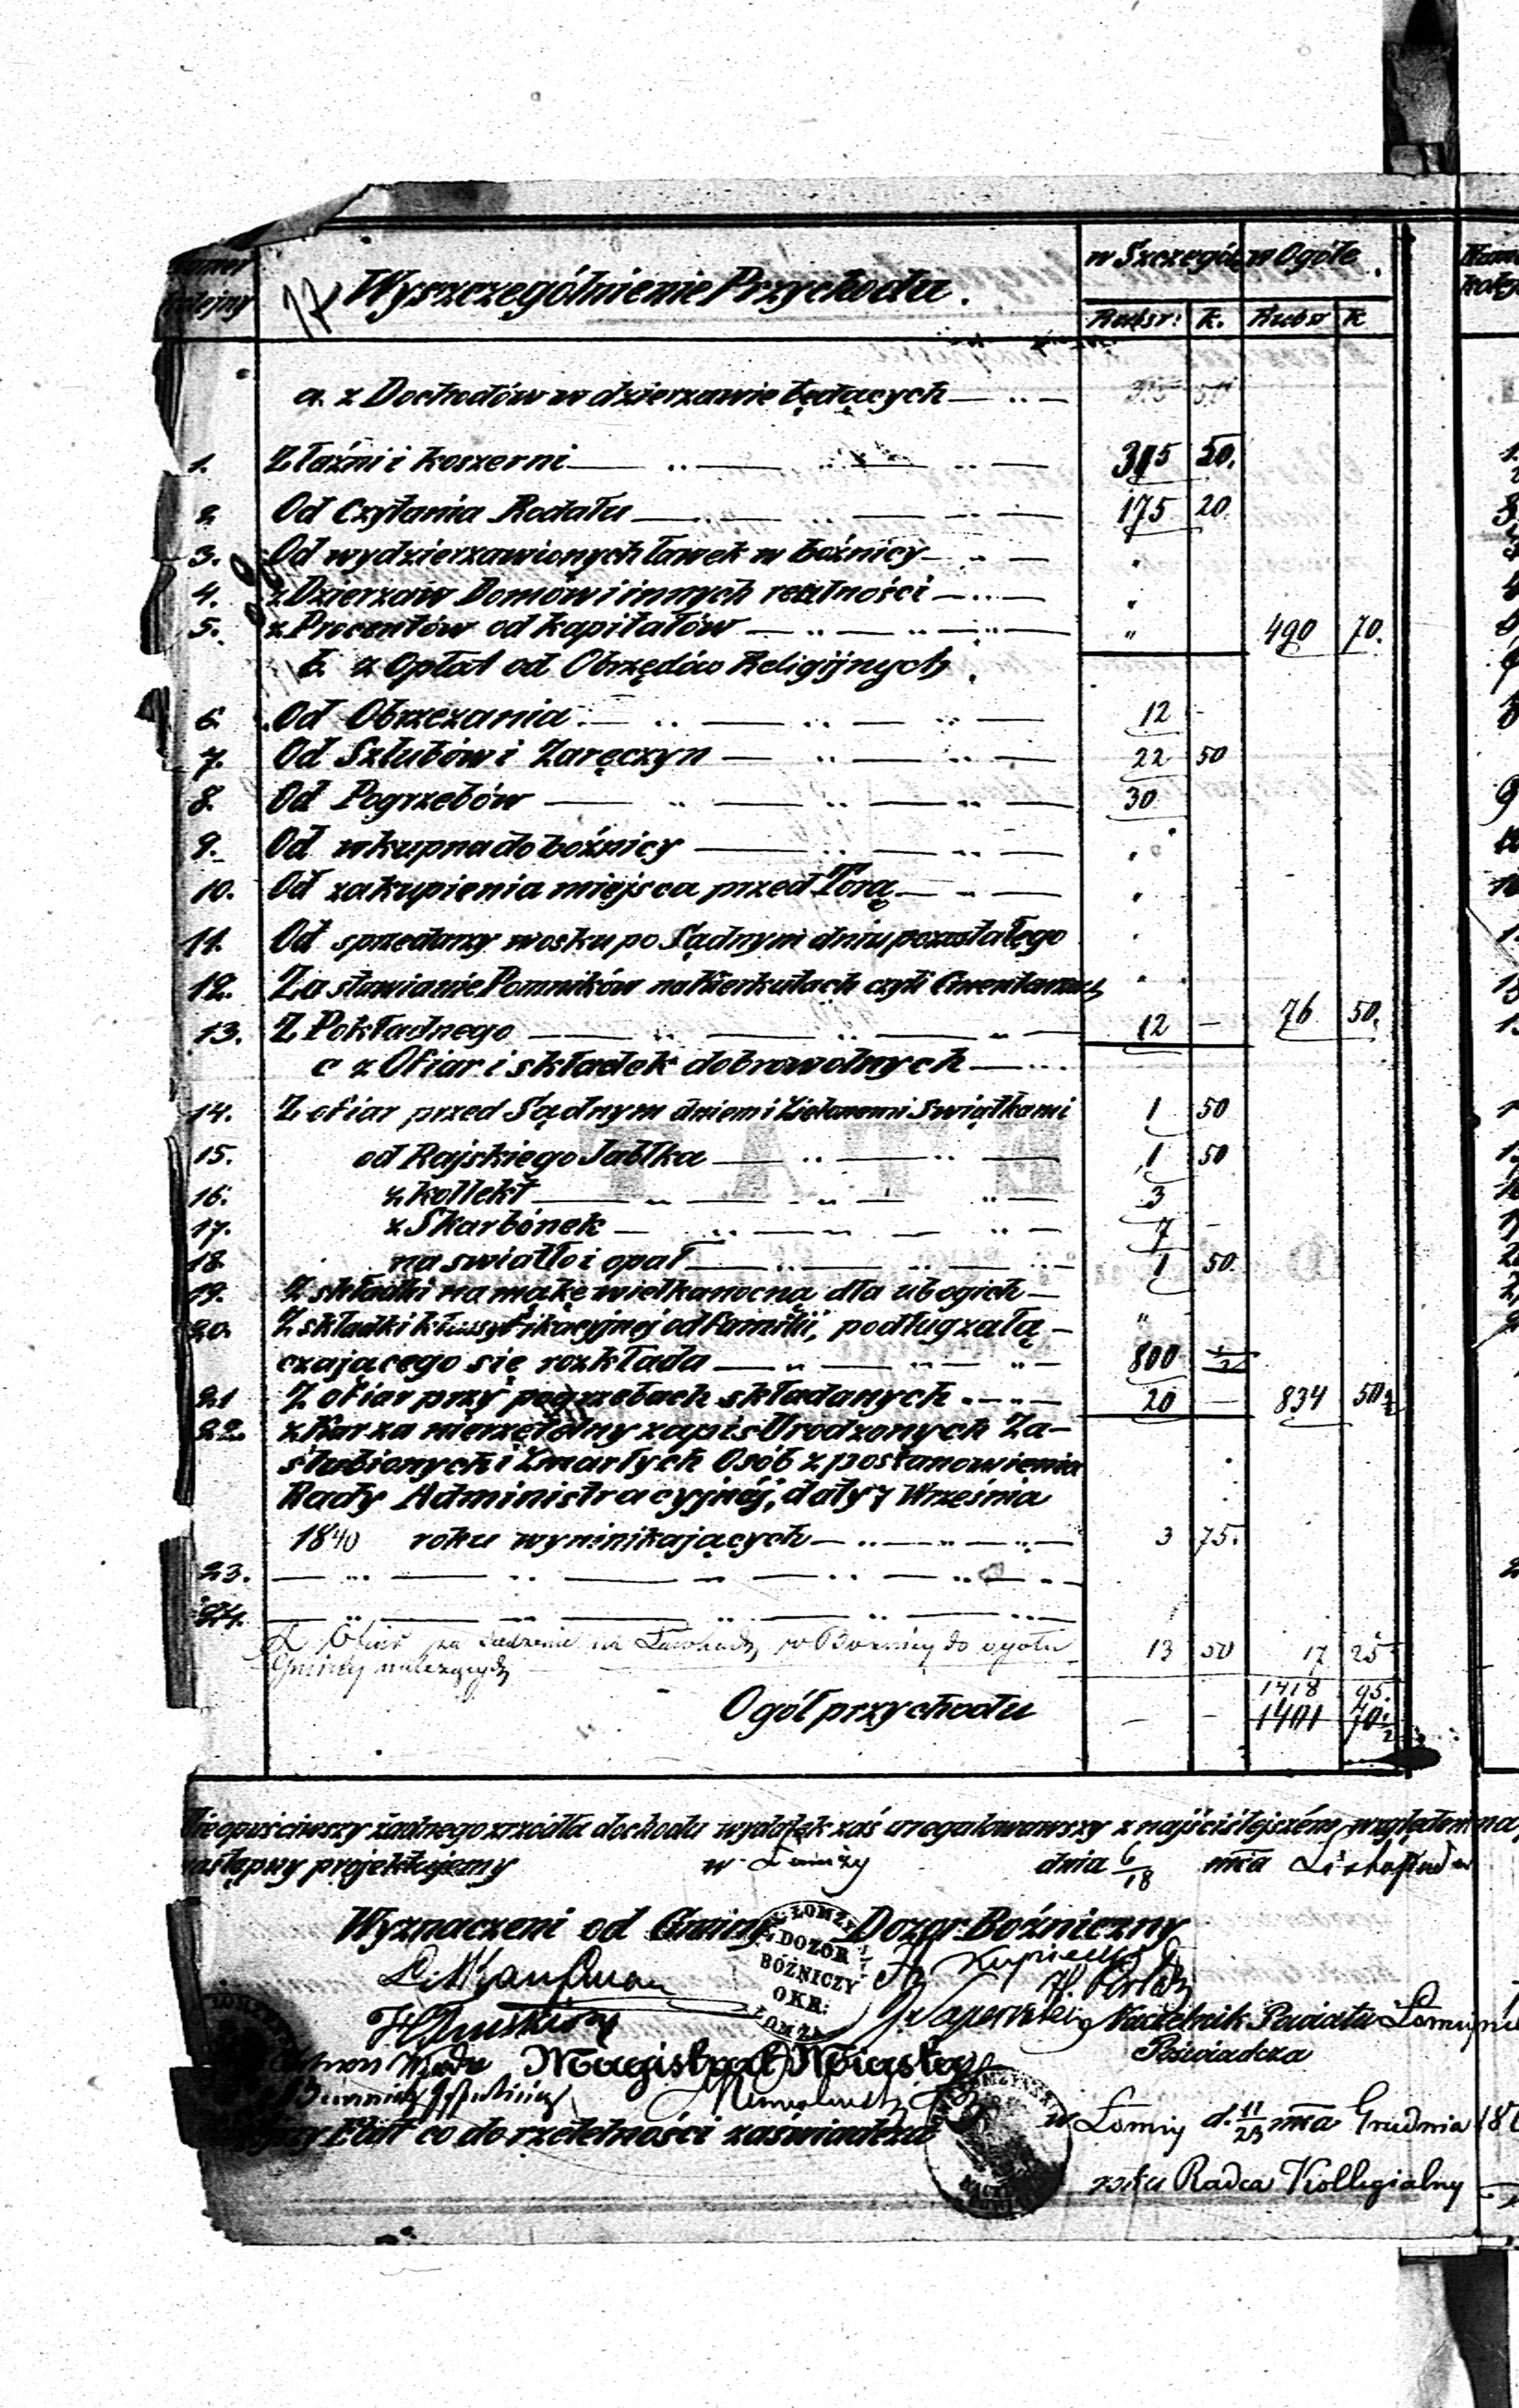 Numer kolejny
17 Wyszczególnienie Przychodu.
w Szczegól. w Ogóle.
Rubsr: k. Rubsr k
a. z Dochodów w dzierzawie będących
1. Z łaźni i koszerni 315 50.
2 Od Czytania Rodału 175 20.
3. Od wydzierzawionych ławek w bożnicy "
4. z Dzierzaw Domów i innych realności "
5. z Procentów od kapitałów " 490 70.
b. z Opłat od Obrzędów Religijnych.
6. Od Obrzezania 12 -
7. Od Szlubów i Zaręczyn 22 50
8. Od Pogrzebów 30
9. Od wkupna do bożnicy "
10. Od zakupienia miejsca przed Torą "
11. Od sprzedarzy wosku po Sądnym dniu pozostałego "
12. Za stawianie Pomników na Kierkutach czyli Cmentarzach "
13. Z Pokładnego 12 - 76 50.
c z Ofiar i składek dobrowolnych
14. Z ofiar przed Sądnym dniem i Zielonemi Swiątkami 1 50
15. od Rajskiego Jabłka 1 50
16. z kollekt 3
17. z Skarbónek 7 -
18. na swiatło i opał 1 50
19. Z składki na mąkę wielkanocną dla ubogich "
20. Z składki klassyfikacyjnej od Familii, podług załą-
czającego się rozkłada 800 ½
21 Z ofiar przy pogrzebach składanych 20 - 834 50½
22. z Kar za nierzetelny zapis Urodzonych Za-
ślubionych i Zmarłych Osób z postanowienia
Rady Administracyjnéj, daty 7 Wrzesnia
1840 roku wyninikających 3 75.
23.
24.
Z Ofiar za siedzenie na Ławkach w Boznicy do ogółu 13 50 17 25
Gminy należących
1418 95.
Ogół przychodu - - 1401 70½
Nieopuściwszy żadnego zrzódła dochodu wydatek zaś uregulowawszy z najściślejszém względem na
następny projektujemy w Łomży dnia 6/18 mca Listopada
Wyznaczeni od Gminy Dozor Bożniczny
DOZOR BÓŻNICZY OKR: ŁOMŻY
Naczelnik Powiatu Łomżyńs
Poświadcza
Magistrat Miasta
Etat co do rzetelności zaświadcza
w Łomży d. 11/23 mca Grudnia 18
roku Radca Kollegialny